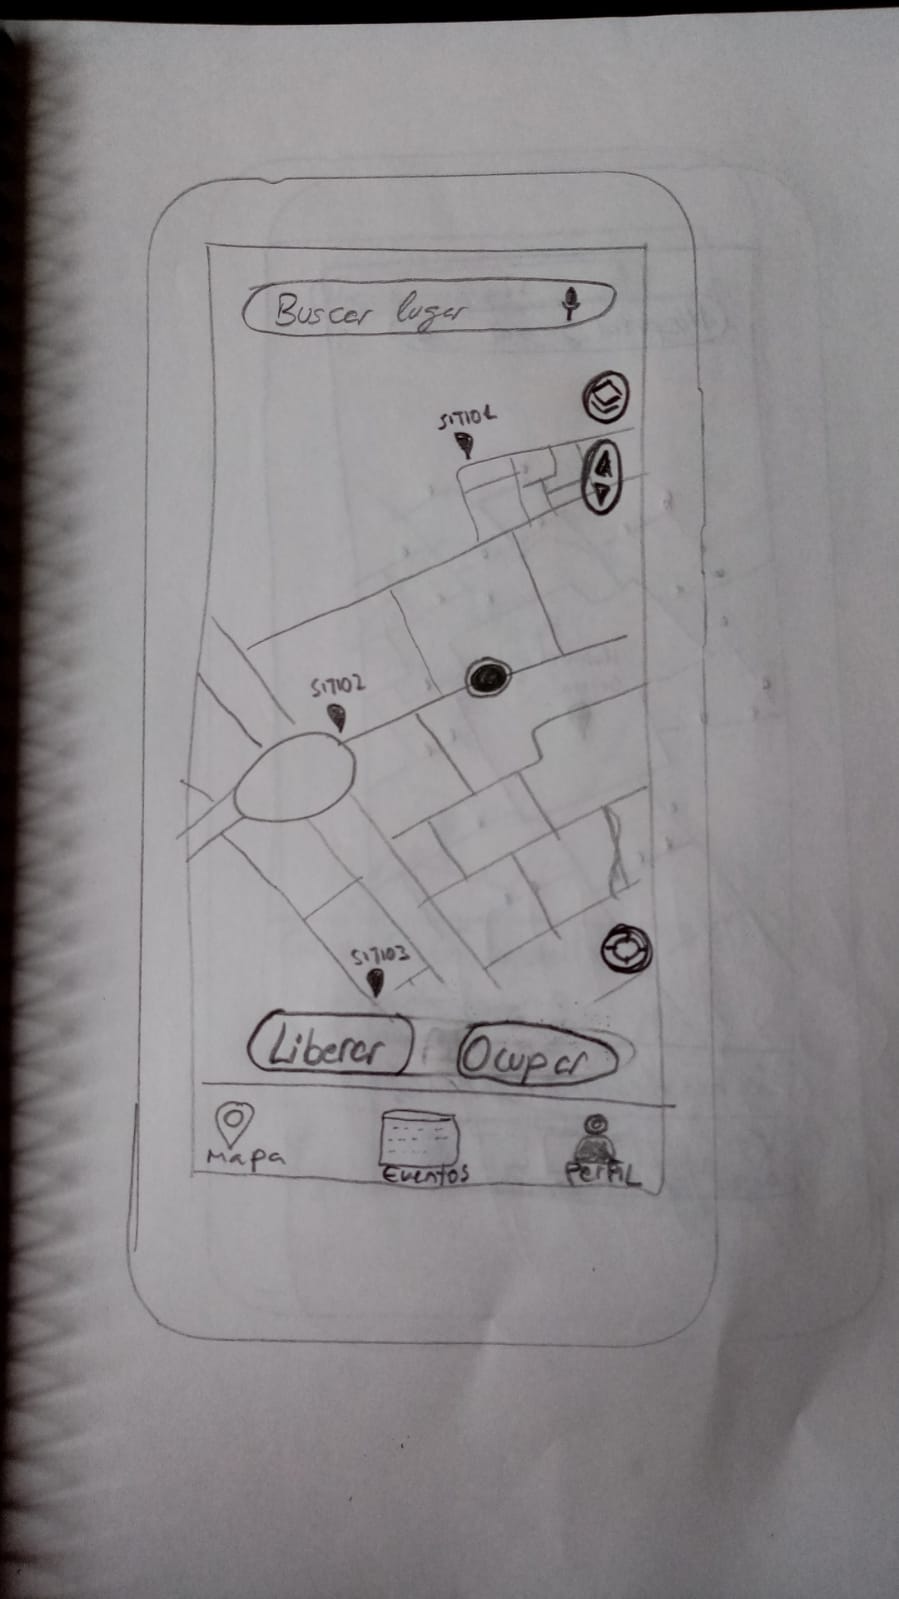 Buscar lugar
SITIO1
SITIO2
SITIO3
Liberar
Ocupar
Mapa
Eventos
Perfil